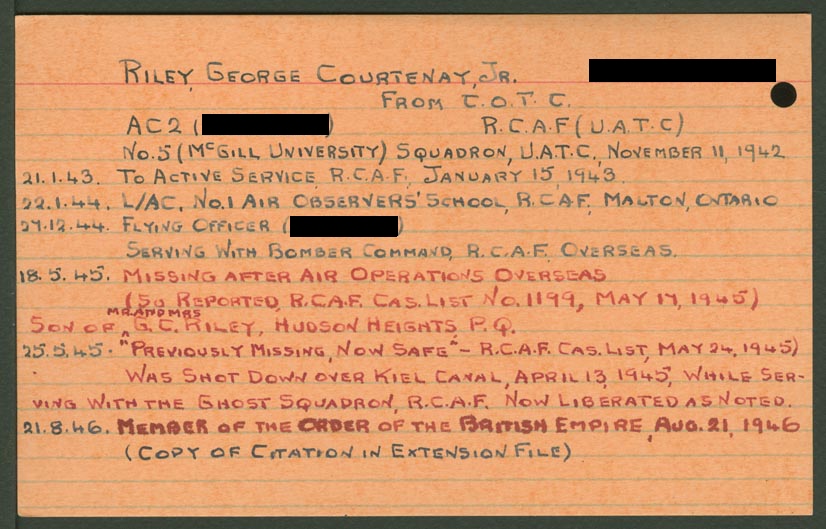 RILEY, GEORGE COURTENAY, JR.
FROM C.O.T.C.
AC2 ( ) R.C.A.F (U.A.T.C)
NO.5 (McGILL UNIVERSITY) SQUADRON, U.A.T.C., NOVEMBER 11, 1942
21.1.43. TO ACTIVE SERVICE, R.C.A.F., JANUARY 15, 1943.
22.1.44. L/AC, NO.1 AIR OBSERVERS' SCHOOL, R.C.A.F., MALTON, ONTARIO
27.12.44. FLYING OFFICER ( )
SERVING WITH BOMBER COMMAND, R.C.A.F. OVERSEAS.
18.5.45. MISSING AFTER AIR OPERATIONS OVERSEAS
(SO REPORTED, R.C.A.F. CAS. LIST NO. 1199, MAY 17, 1945)
SON OF MR. AND MRS G.C. RILEY, HUDSON HEIGHTS, P.Q.
25.5.45. "PREVIOUSLY MISSING, NOW SAFE" - R.C.A.F. CAS. LIST, MAY 24, 1945)
WAS SHOT DOWN OVER KIEL CANAL, APRIL 13, 1945, WHILE SER-
VING WITH THE GHOST SQUADRON, R.C.A.F. NOW LIBERATED AS NOTED.
21.8.46. MEMBER OF THE ORDER OF THE BRITISH EMPIRE, AUG. 21, 1946
(COPY OF CITATION IN EXTENSION FILE)